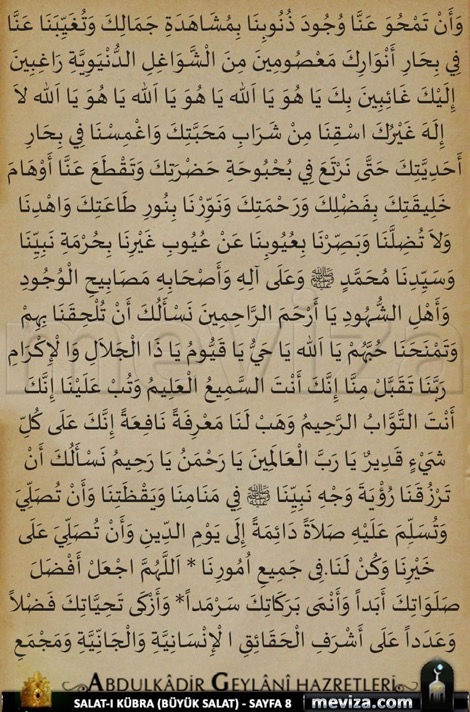 وَأَنْ تَمْحُوَ عَنَّا وُجُودَ ذُنُوبِنَا بِمُشَاهَدَةِ جَمَالِكَ وَتُغَيِّبَنَا عَنَّا
فِي بِحَارِ أَنْوَارِكَ مَعْصُومِينَ مِنَ الْشَّوَاغِلِ الدُّنْيَوِيَّةِ رَاغِبِينَ
إِلَيْكَ غَائِبِينَ بِكَ يَا هُوَ يَا اَلله يَا هُوَ يَا اَلله يَا هُوَ يَا اَلله لاَ
إِلَهَ غَيْرُكَ اسْقِنَا مِنْ شَرَابِ مَحَبَّتِكَ وَاغْمِسْنَا فِي بِحَارِ
أَحَدِيَّتِكَ حَتَّى نَرْتَعَ فِي بُحْبُوحَةِ حَضْرَتِكَ وَتَقْطَعَ عَنَّا أَوْهَامَ
خَلِيقَتِكَ بِفَضْلِكَ وَرَحْمَتِكَ وَنَوِّرْنَا بِنُورِ طَاعَتِكَ وَاهْدِنَا
وَلاَ تُضِلَّنَا وَبَصِّرْنَا بِعُيُوبِنَا عَنْ عُيُوبِ غَيْرِنَا بِحُرْمَةِ نَبِيِّنَا
وَسَيِّدِنَا مُحَمَّدٍ ﷺ وَعَلَى آلِهِ وَأَصْحَابِهِ مَصَابِيحِ الْوُجُودِ
وَأَهْلِ الشُّهُودِ يَا أَرْحَمَ الرَّاحِمِينَ نَسْأَلُكَ أَنْ تُلْحِقَنَا بِهِمْ
وَتَمْنَحَنَا حُبَّهُمْ يَا اَلله يَا حَيُّ يَا قَيُّومُ يَا ذَا الْجَلاَلِ وَالْإِكْرَامِ
رَبَّنَا تَقَبَّلْ مِنَّا إِنَّكَ أَنْتَ السَّمِيعُ الْعَلِيمُ وَتُبْ عَلَيْنَا إِنَّكَ
أَنْتَ التَّوَّابُ الرَّحِيمُ وَهَبْ لَنَا مَعْرِفَةً نَافِعَةً إِنَّكَ عَلَى كُلِّ
شَيْءٍ قَدِيرٌ يَا رَبَّ الْعَالَمِينَ يَا رَحْمَنُ يَا رَحِيمُ نَسْأَلُكَ أَنْ
تَرْزُقَنَا رُؤْيَةَ وَجْهِ نَبِيِّنَا ﷺ فِي مَنَامِنَا وَيَقْظَتِنَا وَأَنْ تُصَلِّيَ
وَتُسَلِّمَ عَلَيْهِ صَلاَةً دَائِمَةً إِلَى يَوْمِ الدِّينِ وَأَنْ تُصَلِّيَ عَلَى
خَيْرِنَا وَكُنْ لَنَا فِى جَمِيعِ اُمُورِنَا * اَللَّهُمَّ اجْعَلْ أَفْضَلَ
صَلَوَاتِكَ أَبَداً وَأَنْمَى بَرَكَاتِكَ سَرْمَداً* وَأَزْكَى تَحِيَّاتِكَ فَضْلاً
وَعَدَداً عَلَى أَشْرَفِ الْحَقَائِقِ الْإِنْسَانِيَّةِ وَالْجَانِّيَّةِ وَمَجْمَعِ
ABDULKÂDİR GEYLÂNÎ HAZRETLERİ
SALAT-I KÜBRA (BÜYÜK SALAT) - SAYFA 8 meviza.com
meviza